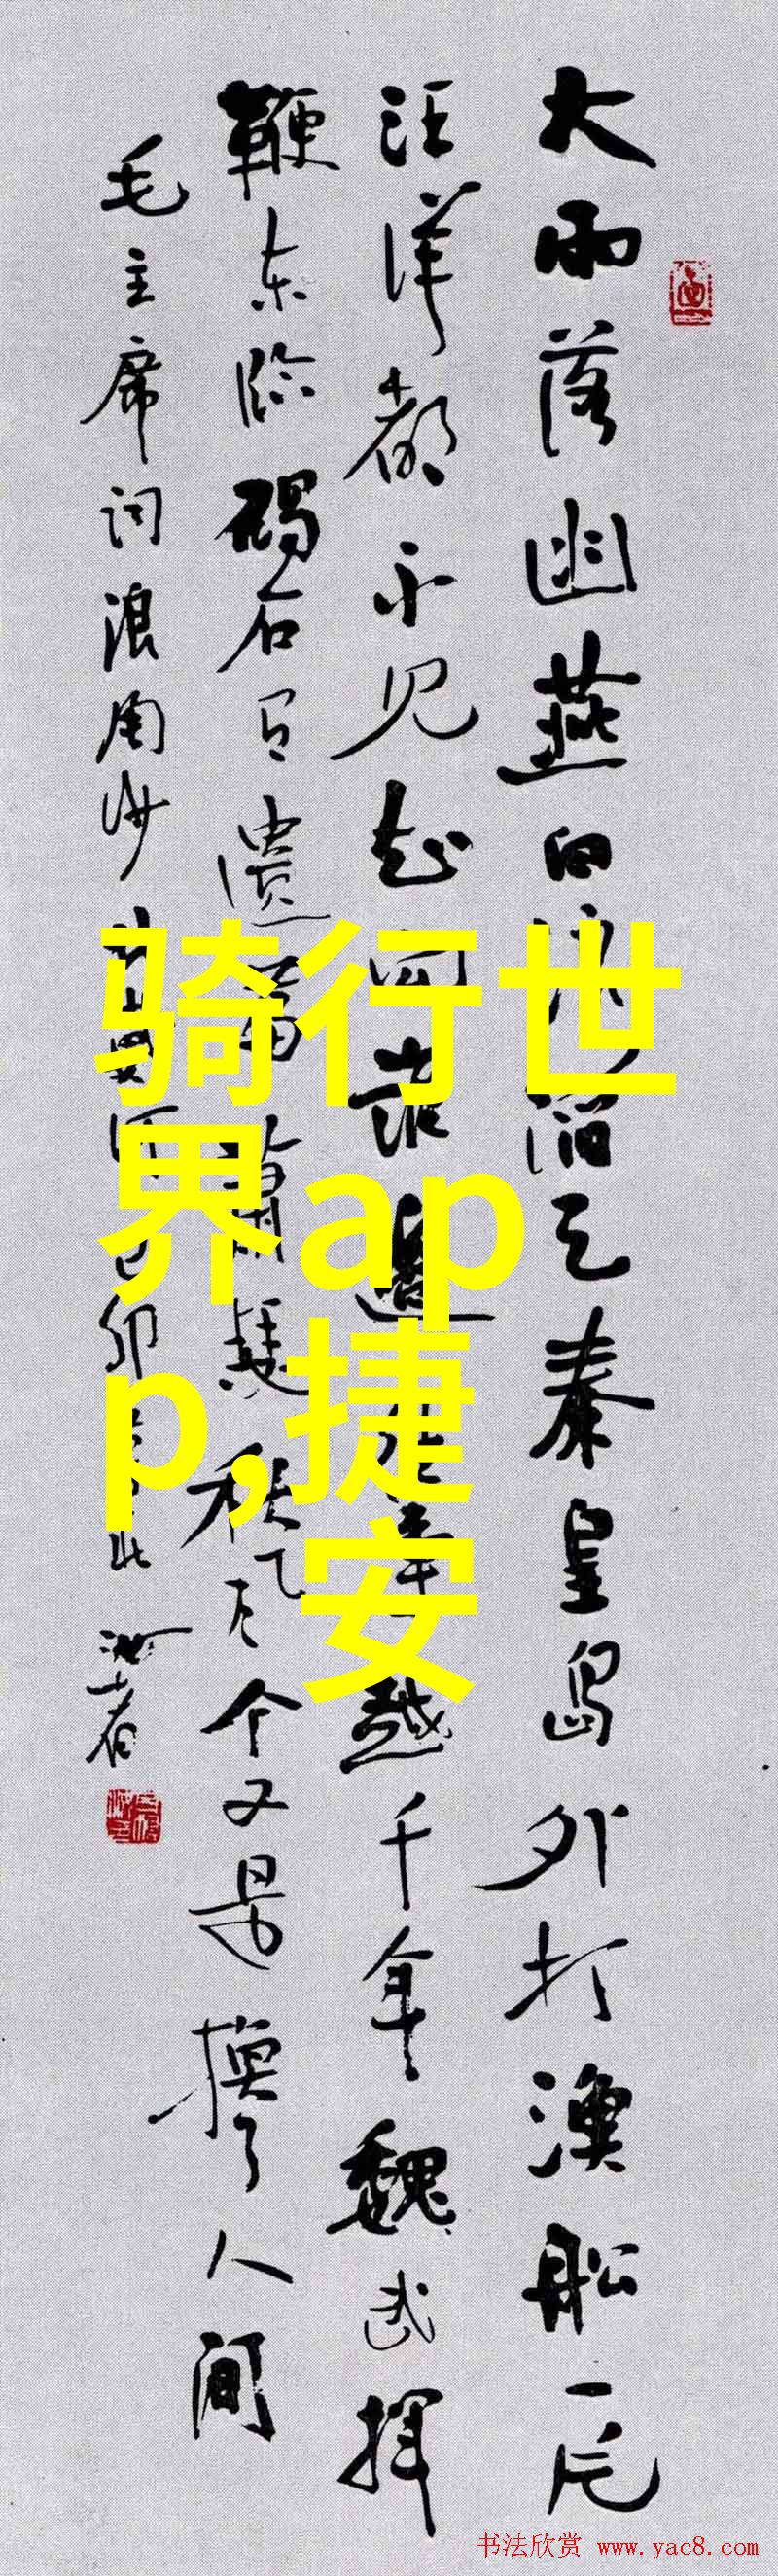 大雨落幽燕白浪滔天秦皇岛外打漁船一片
汪洋都不见知向谁邊往事越千年魏武挥
鞭东临碣石有遗篇萧瑟秋风今又是換了人间
毛主席词浪淘沙
骑行世
界ap
p,捷
安
书法欣赏 www.yac8.com